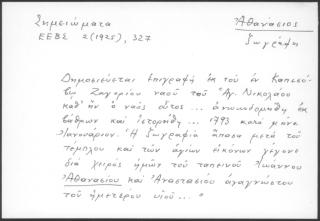 Σημειώματα
Ἀθανάσιος
ΕΕΒΣ 2(1925), 327
ζωγράφος
Δημοσιεύεται ἐπιγραφή ἐκ τοῦ ἐν Καπεσό-
βῳ Ζαγορίου ναοῦ τοῦ Ἁγ. Νικολάου
καθ' ἥν ὁ ναός οὗτος ... ἀνῳκοδομήθη ἐκ
βάθρων καί ἱστορήθη ... 1793 κατά μῆνα
Ἰανουάριον. Ἡ ζωγραφία ἅπασα μετά τοῦ
τέμπλου καί τῶν ἁγίων εἰκόνων γέγονε
διά χειρός ἡμῶν τοῦ ταπεινοῦ Ἰωάννου
Ἀθανασίου καί Ἀναστασίου ἀναγνώστου
τοῦ ἡμετέρου υἱοῦ ... "